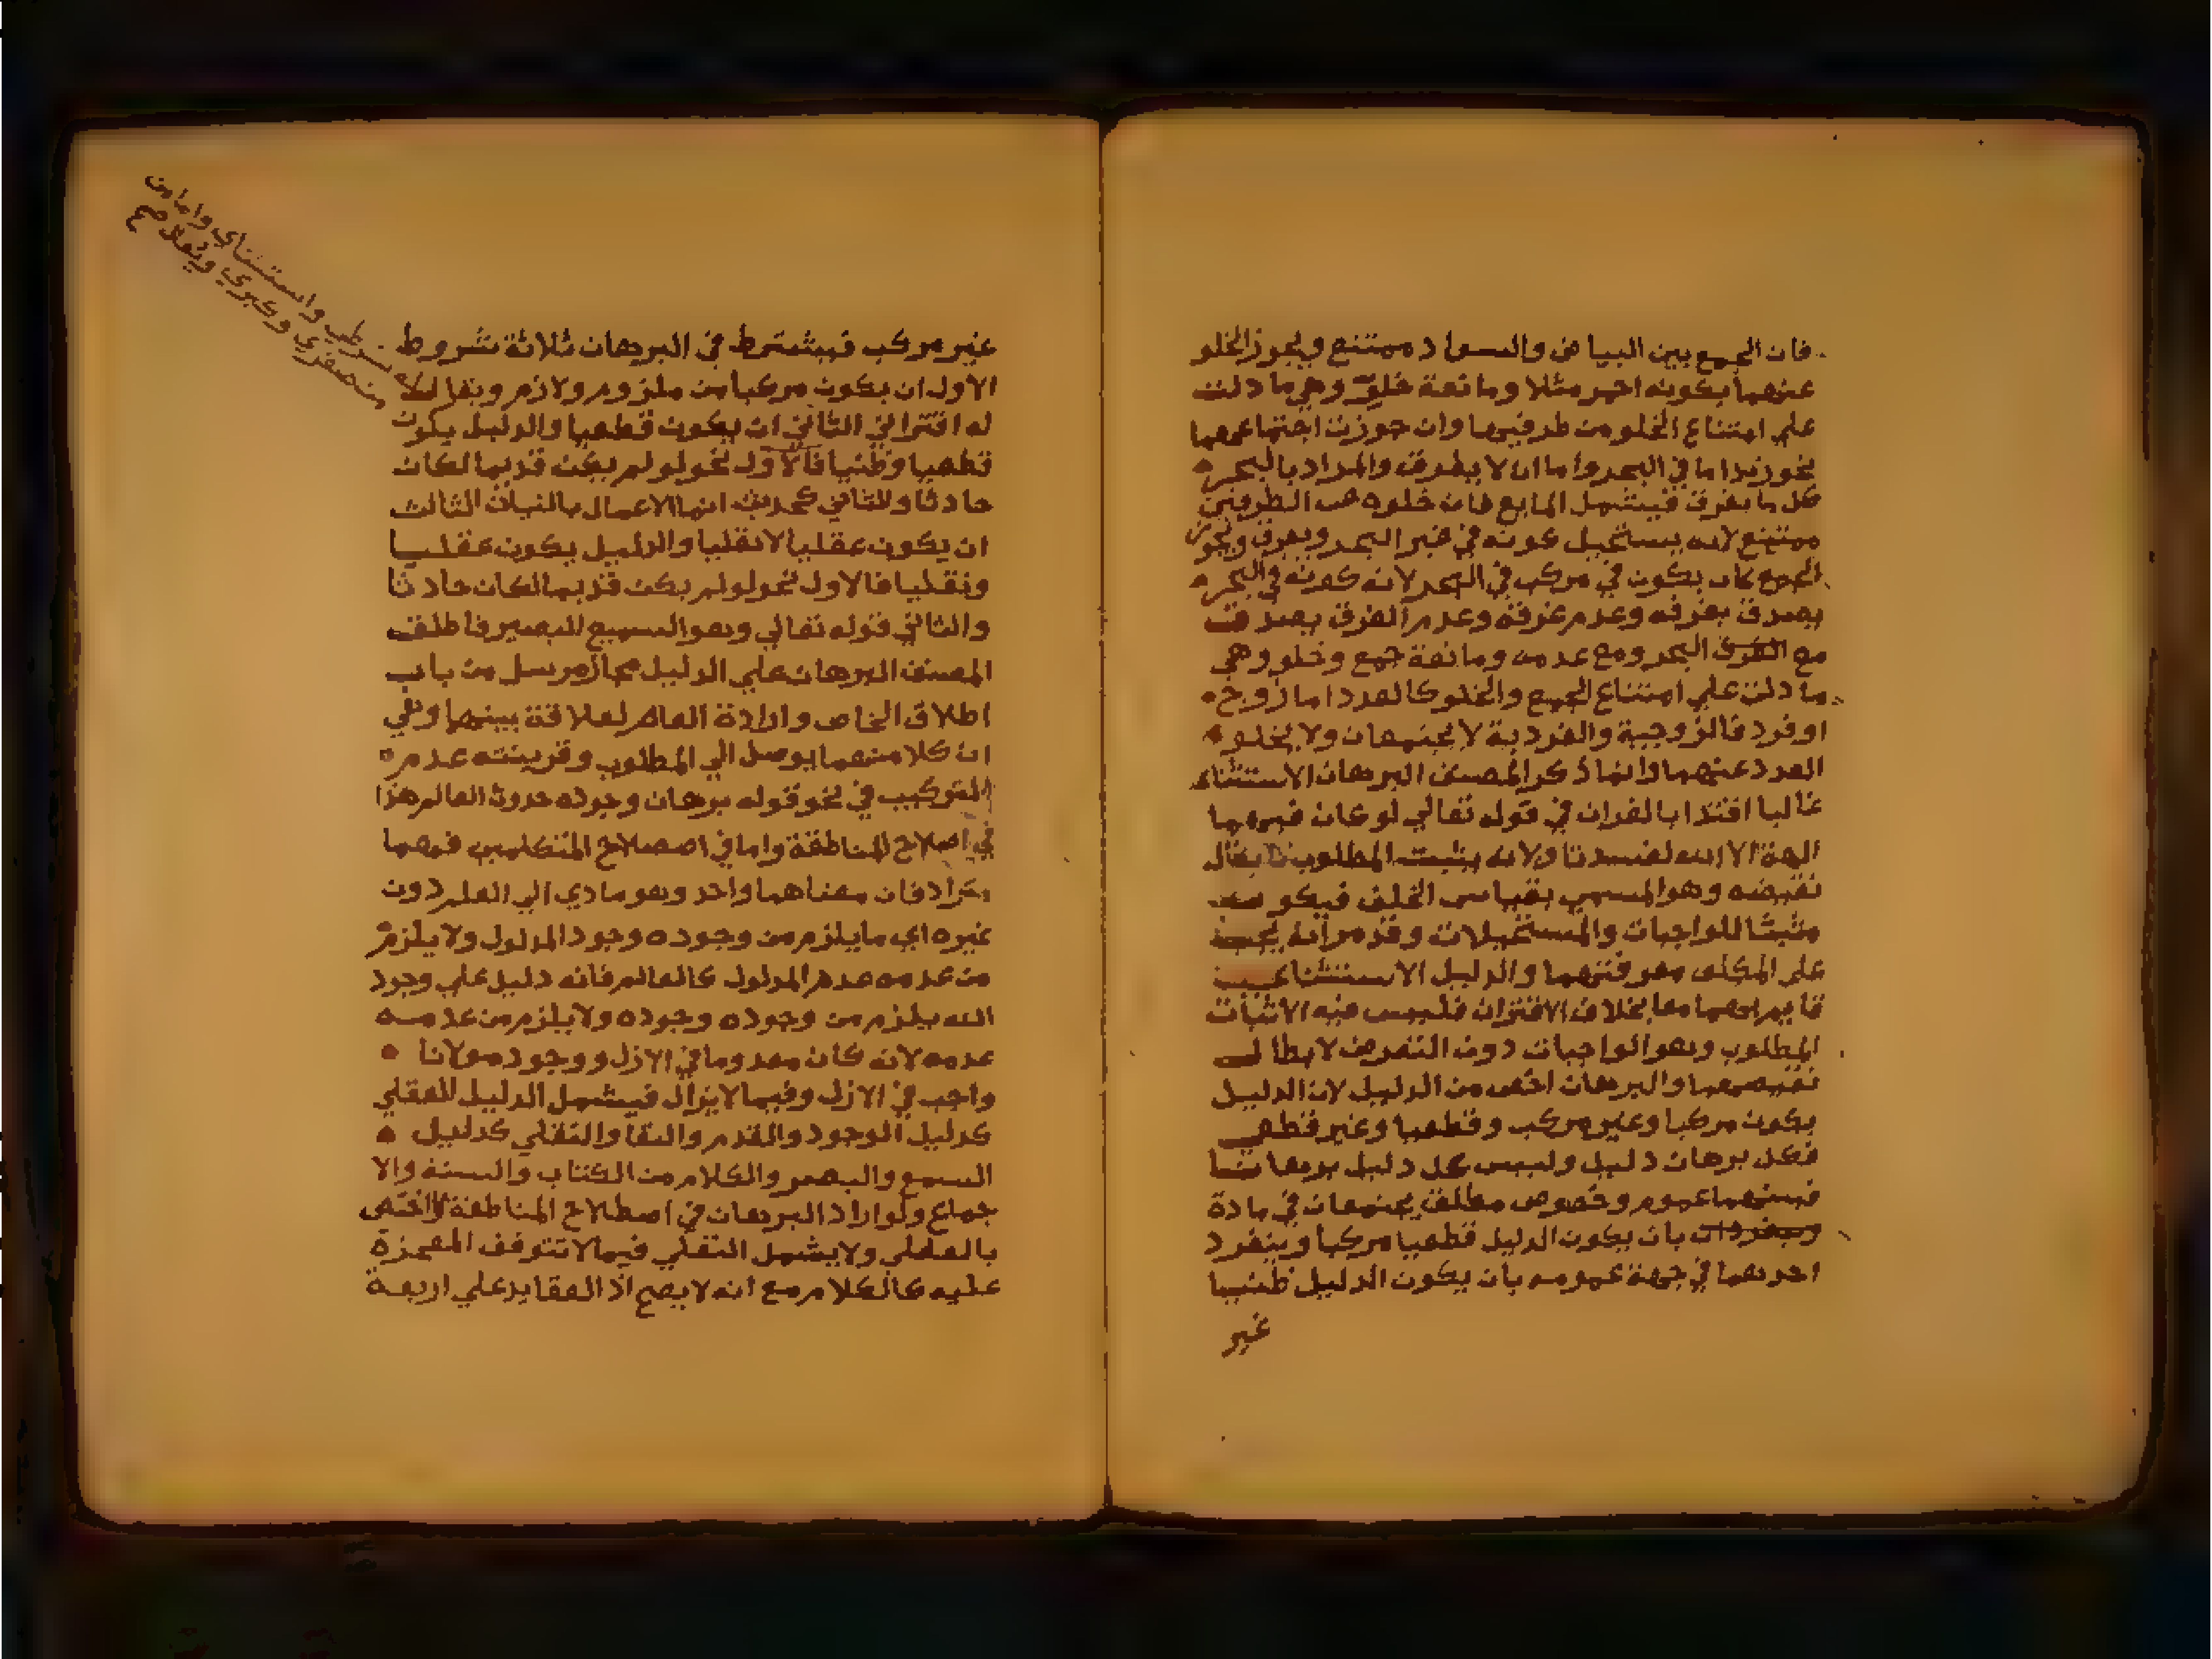 فان الجمع بين البياض والسواد ممتنع ويجوز الخلو
عنهما بكونه احمر مثلا ومانعة خلو وهي ما دلت
علي امتناع الخلو من طرفيها وان جوزت اجتماعهما
نحو زيد اما في البحر واما ان لا يغرق والمراد بالبحر
كل ما يغرق فيشمل المايع فان خلوه عن الطرفين
ممتنع لانه يستحيل كونه في غير البحر ويغرق ويجوز
الجمع كان يكون في مركب في البحر لانه كونه في البحر
يصدق بغرقه وعدم غرقه وعدم الغرق يصدق
مع الغرق البحر ومع عدمه ومانعة جمع وخلو وهي
ما دلت علي امتناع الجمع والخلو كالعدد اما زوج
او فرد فالزوجية والفردية لا يجتمعان ولا يخلو
العدد عنهما وانما ذكر المصنف البرهان الاستثناء
غالبا اقتدا بالقران في قوله تعالي لو كان فيهما
الهة الا الله لفسدتا ولانه يثبت المطلوب بابطال
نقيضه وهو المسمي بقياس الخلف فيكو
مثبتا للواجبات والمستحيلات وقد مر انه يجب
علي المكلف معرفتهما والدليل الاستثناءي
قايم بهما معا بخلاف الاقتران فليس فيه الا اثبات
المطلوب وهو الواجبات دون التعرض لابطال
نقيضهما والبرهان اخص من الدليل لان الدليل
يكون مركبا وغير مركب وقطعيا وغير قطعي
فكل برهان دليل وليس كل دليل برهانا
فبينهما عموم وخصوص مطلق يجتمعان في مادة
وينفردان بان يكون الدليل قطعيا مركبا وينفرد
احدهما في جهة عمومه بان يكون الدليل ظنيا
غير
غير مركب فيشترط في البرهان ثلاثة شروط
الاول ان يكون مركبا من ملزوم ولازم ويقال
له اقتراني الثاني ان يكون قطعيا والدليل يكون
قطعيا وظنيا فالاول نحو لو لم يكن قديما لكان
حادثا والثاني كحديث انما الاعمال بالنيات الثالث
ان يكون عقليا لا نقليا والدليل يكون عقليا
ونقليا فالاول نحو لو لم يكن قديما لكان حادثا
والثاني قوله تعالي وهو السميع البصير فاطلق
المصنف البرهان علي الدليل مجاز مرسل من باب
اطلاق الخاص وارادة العام لعلاقة بينهما وهي
ان كلا منهما يوصل الي المطلوب وقرينته عدم
التركيب في نحو قوله برهان وجوده حدوث العالم هذا
في اصلاح المناطقة واما في اصصلاح المتكلمين فهما
مترادفان معناهما واحد وهو مادي الي العلم دون
غيره اي ما يلزم من وجوده وجود المدلول ولا يلزم
من عدمه عدم المدلول كالعالم فانه دليل علي وجود
الله يلزم من وجوده وجوده ولا يلزم من عدمه
عدمه لانه كان معدوما في الازل ووجود مولانا
واجب في الازل وفيما لا يزال فيشمل الدليل العقلي
كدليل الوجود والقدم والبقا والنقلي كدليل
السمع والبصر والكلام من الكتاب والسنة والا
جماع ولو اراد البرهان في اصطلاح المناطقة لاختص
بالعقلي ولا يشمل النقلي فيما لا تتوقف المعجزة
عليه كالكلام مع انه لا يصح اذ العقايد علي اربعة
شرطي واستثناي واما من
من صغري وكبري ويقال